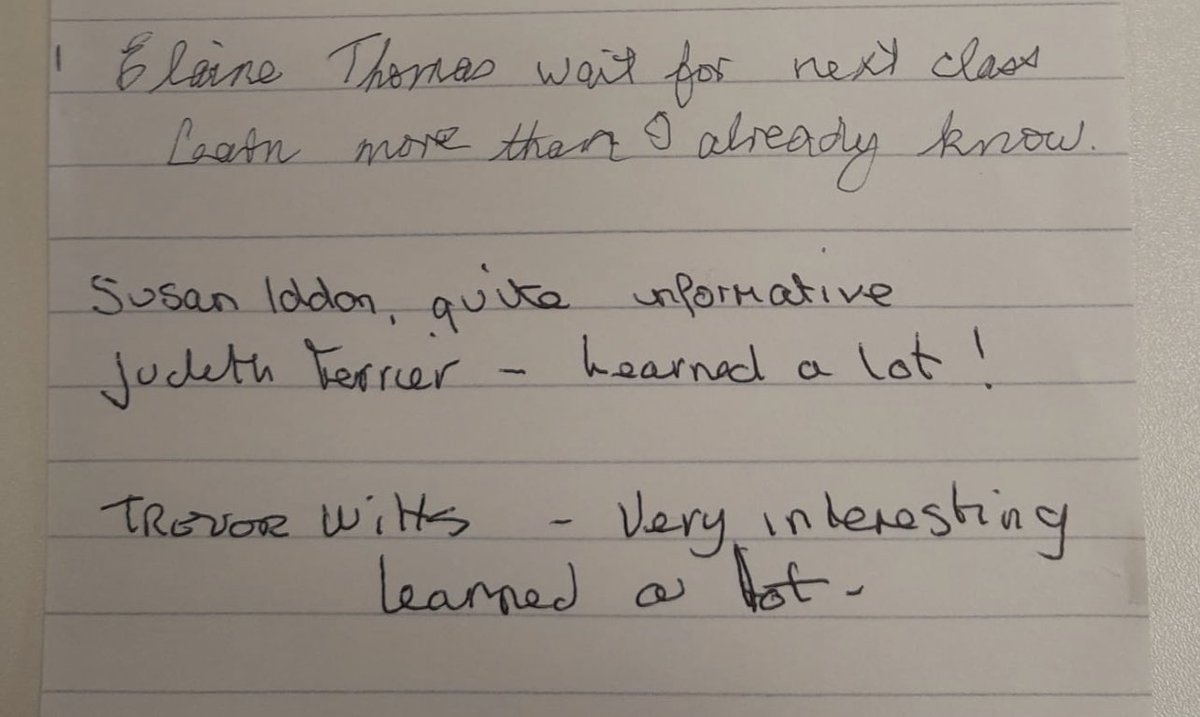 Elaine Thomas wait for next class
Learn more than I already know.
Susan Iddon, quite informative
Judeth Ferrier - Learned a lot !
TREVOR Witts - Very interesting
learned a lot -